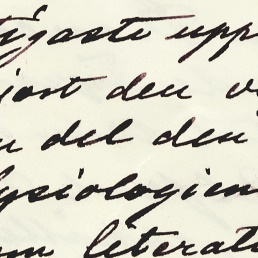 tigaste upp
jort den v
n del den
ysiologien
om literatu